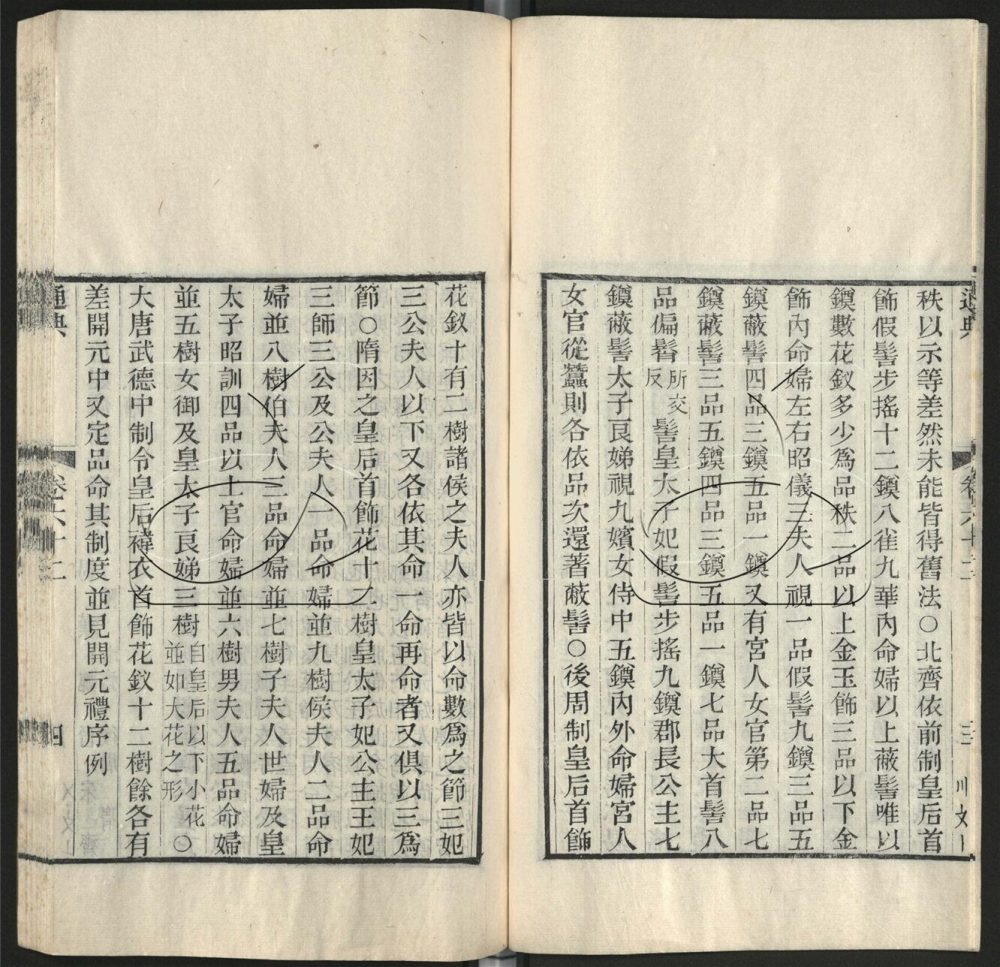 秩以示等差然未能皆得舊法○北齊依前制皇后首
飾假髻步搖十二鏌八雀九華內命婦以上蔽髻唯以
鏌數花釵多少爲品秩二品以上金玉飾三品以下金
飾內命婦左右昭儀三夫人視一品假髻九鏌三品五
鏌蔽髻四品三鏌五品一鏌又有宮人女官第二品七
鏌蔽髻三品五鏌四品三鏌五品一鏌七品大首髻八
品偏髾所交反髻皇太子妃假髻步搖九鏌郡長公主七
鏌蔽髻太子良娣視九嬪女侍中五鏌內外命婦宮人
女官從蠶則各依品次還著蔽髻○後周制皇后首飾
花釵十有二樹諸侯之夫人亦皆以命數爲之節三妃
三公夫人以下又各依其命一命再命者又俱以三爲
節○隋因之皇后首飾花十二樹皇太子妃公主王妃
三師三公及公夫人一品命婦並九樹侯夫人二品命
婦並八樹伯夫人三品命婦並七樹子夫人世婦及皇
太子昭訓四品以上官命婦並六樹男夫人五品命婦
並五樹女御及皇太子良娣三樹自皇后以下小花並如大花之形○
大唐武德中制令皇后褘衣首飾花釵十二樹餘各有
差開元中又定品命其制度並見開元禮序例
通典
卷六十二
四